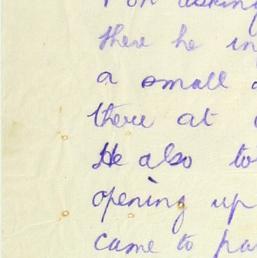 on asking
there he in
a small
there at
He also to
opening up
came to pa